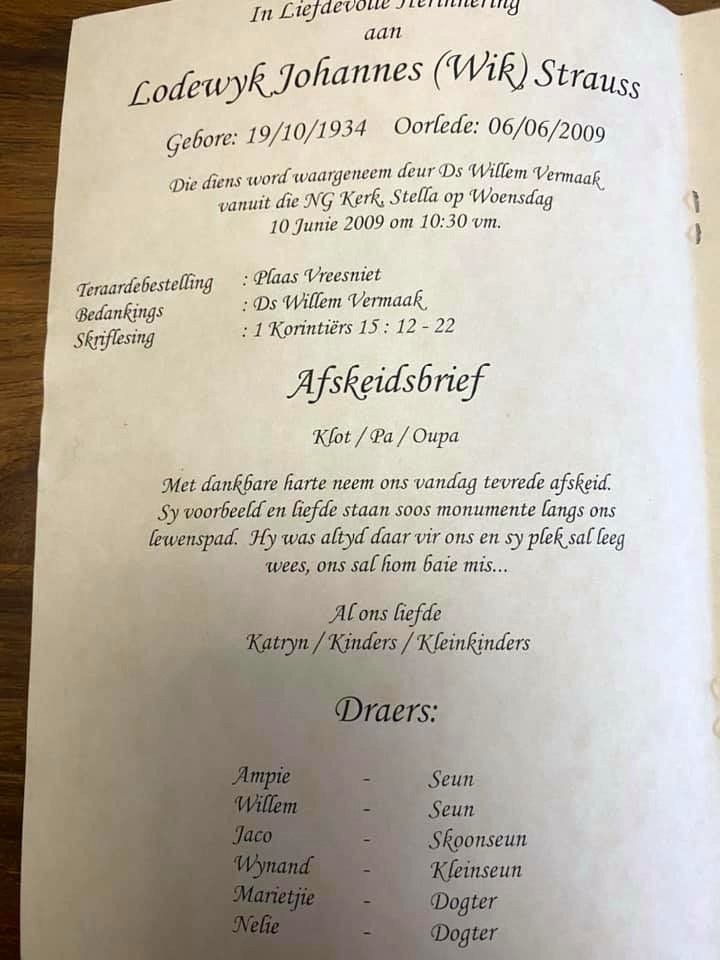 In Liefdevolle Herinnering
aan
Lodewyk Johannes (Wik) Strauss
Gebore: 19/10/1934 Oorlede: 06/06/2009
Die diens word waargeneem deur Ds Willem Vermaak
vanuit die NG Kerk, Stella op Woensdag
10 Junie 2009 om 10:30 vm.
Teraardebestelling : Plaas Vreesniet
Bedankings : Ds Willem Vermaak
Skriflesing : 1 Korintiërs 15 : 12 - 22
Afskeidsbrief
Klot / Pa / Oupa
Met dankbare harte neem ons vandag tevrede afskeid.
Sy voorbeeld en liefde staan soos monumente langs ons
lewenspad. Hy was altyd daar vir ons en sy plek sal leeg
wees, ons sal hom baie mis...
Al ons liefde
Katryn / Kinders / Kleinkinders
Draers:
Ampie - Seun
Willem - Seun
Jaco - Skoonseun
Wynand - Kleinseun
Marietjie - Dogter
Nelie - Dogter